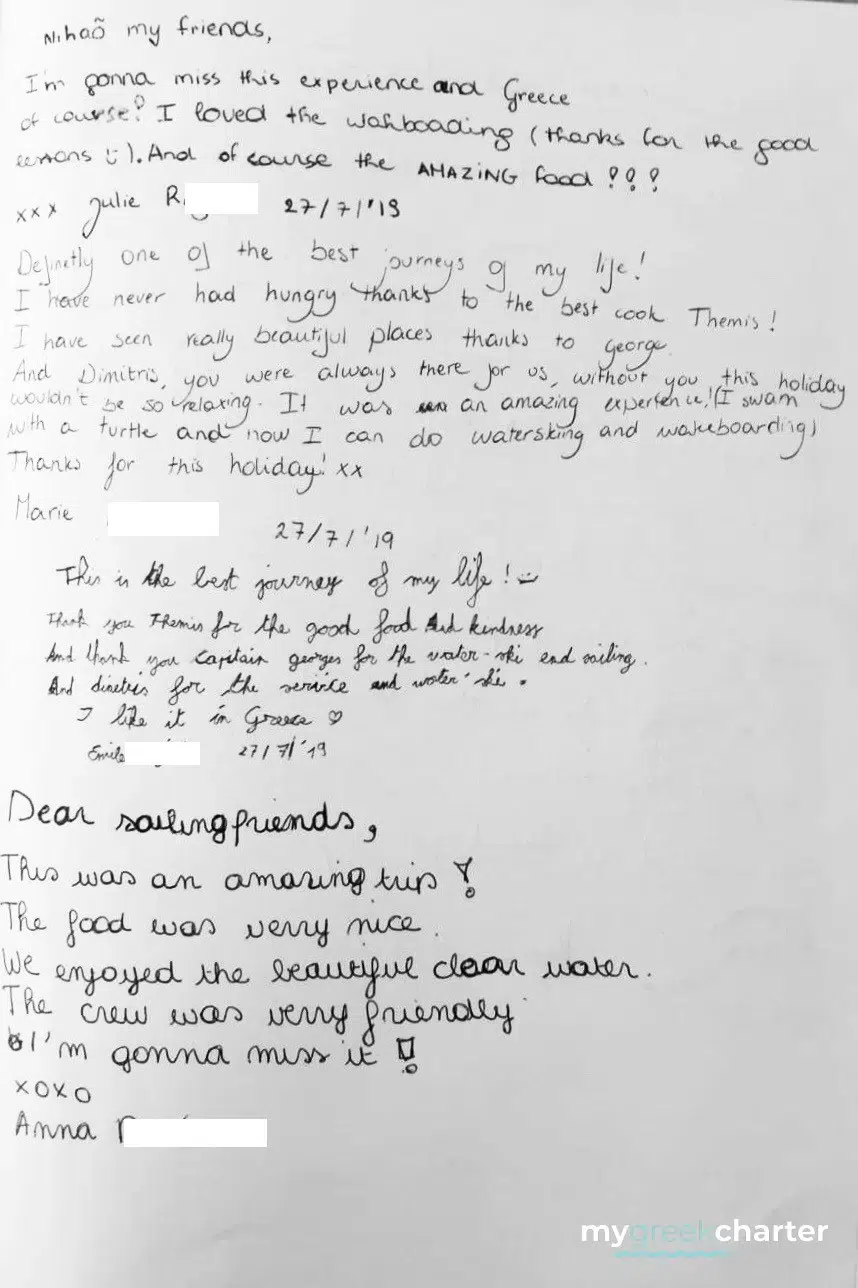 Nihaõ my friends,
I'm gonna miss this experience and Greece
of course! I loved the wakboading (thanks for the good
lessons :)). And of course the AMAZING food !!!
xxx Julie R 27/7/'19
Definetly one of the best journeys of my life!
I have never had hungry thanks to the best cook Themis!
I have seen really beautiful places thanks to George.
And Dimitris, you were always there for us, without you, this holiday
wouldn't be so relaxing. It was an amazing experience! (I swam
with a turtle and now I can do watersking and wakeboarding)
Thanks for this holiday! xx
Marie
27/7/'19
This is the best journey of my life! :)
Thank you Themis for the good food and kindness
And thank you Capitain georges for the water-ski end sailing.
And dinetris for the service and water-ski.
I like it in Greece ♡
Emile 27/7/'19
Dear sailingfriends,
This was an amazing trip!
The food was verry nice.
We enjoyed the beautiful clear water.
The crew was verry friendly
I'm gonna miss it!!
xoxo
Anna
mygreekcharter